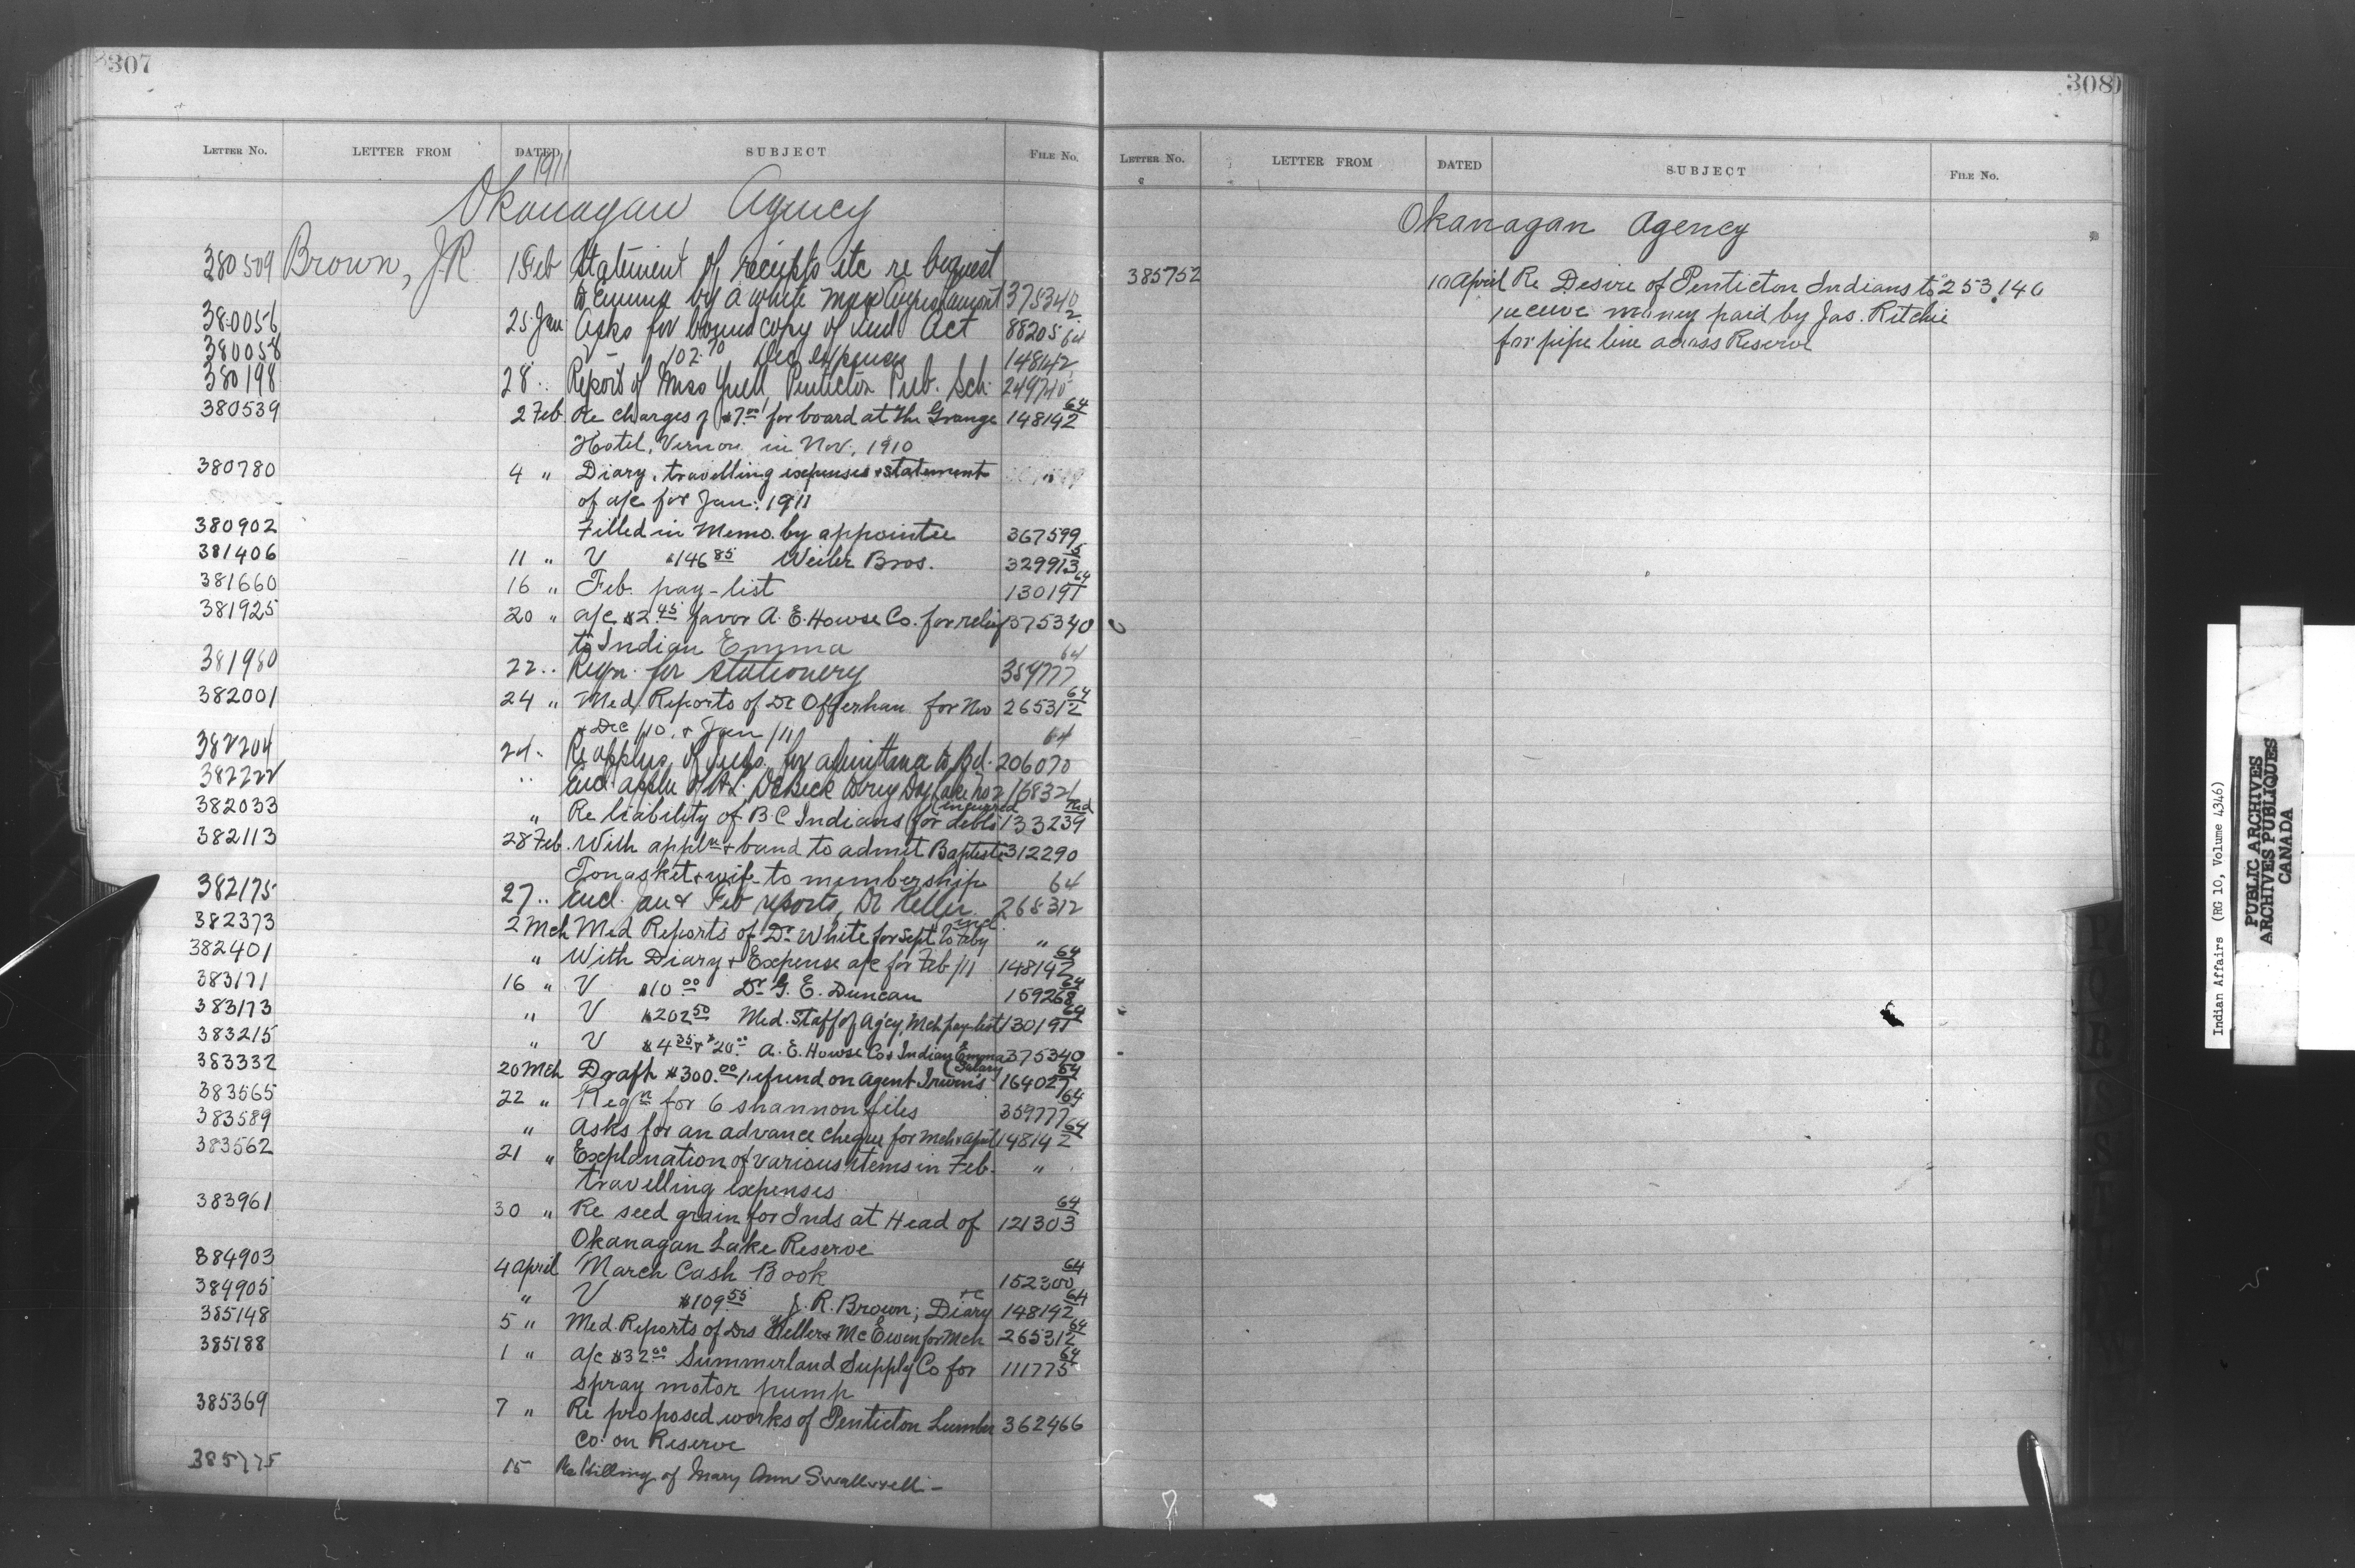 307
LETTER NO. LETTER FROM DATED SUBJECT FILE No.
1911
Okanagan Agency
380509 Brown, J.R. 1 Feb Statement of receipts etc re bequest
to Emma by a white man 375340
380056 25 Jan Asks for bound copy of Ind Act 88205
380058 V 102.70 Dec expenses 148142
380198 28 " Report of Miss Yuill Penticton Pub. Sch.
380539 2 Feb Re charges of $7.00 for board at the Grange 148142 64
Hotel, Vernon in Nov. 1910
380780 4 " Diary, travelling expenses & statement "
of a/c for Jan. 1911
380902 Filled in Memo. by appointee 367599
381406 11 " V $146 85 Weiler Bros. 329913 5
381660 16 " Feb. pay-list 130191 64
381925 20 " a/c $2.45 favor A. E. Howse Co. for relief 375340
to Indian Emma
381980 22 " Reqn. for stationery 359777 64
382001 24 " Med. Reports of Dr Offerhau for Nov 265312 64
& Dec /10, & Jan /11
382204 24 " Re applns of Inds. for admittance to Bd. 206070 64
382222 " Encl. appln of H.L. DeBeck
382033 " Re liability of B.C Indians for debts incurred 133239 Red
382113 28 Feb. With appln & band to admit Baptiste 312290
Tonasket & wife to membership
382175 27 " Encl. Jan & Feb reports, Dr Keller 265312 64
382373 2 Mch Med Reports of Dr White for Sept to Feby incl. "
382401 " With Diary & Expense a/c for Feb /11 148142 64
383171 16 " V $10 00 Dr G. E. Duncan 159268 64
383173 " V $202 50 Med. Staff of Ag'cy, Mch pay-list 130191 64
383215 " V $4 35 & $20 00 A. E. Howse Co & Indian Emma 375340
383332 20 Mch Draft $300.00 refund on agent Irwin's Salary 164027 64
383565 22 " Reqn for 6 shannon files 359777 64
383589 " Asks for an advance cheque for Mch & April 148142 64
383562 21 " Explanation of various items in Feb. "
travelling expenses
383961 30 " Re seed grain for Inds at Head of 121303 64
Okanagan Lake Reserve
384903 4 April March Cash Book 152300 64
384905 " V $109 55 J. R. Brown; Diary &c 148142 64
385148 5 " Med. Reports of Drs Keller & McEwen for Mch 265312 64
385188 1 " a/c $32 00 Summerland Supply Co for 111775 64
spray motor pump
385369 7 " Re proposed works of Penticton Lumber 362466
Co. on Reserve
385775 15 Re killing of Mary Ann Swallwell -
308
LETTER NO. LETTER FROM DATED SUBJECT FILE No.
Okanagan Agency
385752 10 April Re Desire of Penticton Indians to 253,140
receive money paid by Jas. Ritchie
for pipe line across Reserve
Indian Affairs (RG 10, Volume 4346)
PUBLIC ARCHIVES
ARCHIVES PUBLIQUES
CANADA